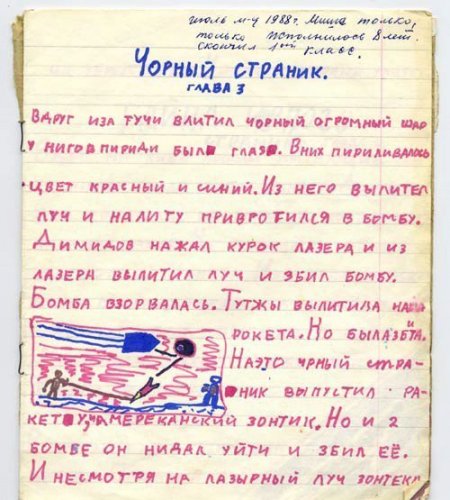 июль м-ц 1988г. Миша только,
только исполнилось 8 лет.
скончил 1ый класс.
ЧОРНЫЙ СТРАНИК.
ГЛАВА 3
ВДРУГ ИЗА ТУЧИ ВЛИТИЛ ЧОРНЫЙ ОГРОМНЫЙ ШАР
У НИГО ВПИРИДИ БЫЛ ГЛАЗ. ВНИХ ПИРИЛИВАЛОСЬ
ЦВЕТ КРАСНЫЙ И СИНИЙ. ИЗ НЕГО ВЫЛИТЕЛ
ЛУЧ И НАЛИТУ ПРИВРОТИЛСЯ В БОМБУ.
ДИМИДОВ НАЖАЛ КУРОК ЛАЗЕРА И ИЗ
ЛАЗЕРА ВЫЛИТИЛ ЛУЧ И ЗБИЛ БОМБУ.
БОМБА ВЗОРВАЛАСЬ. ТУТЖЫ ВЫЛИТИЛА НАША
РОКЕТА. НО БЫЛА ЗБИТА.
НАЭТО ЧРНЫЙ СТРА-
НИК ВЫПУСТИЛ РА-
КЕТУ, АМЕРЕКАНСКИЙ ЗОНТИК. НО И 2
БОМБЕ ОН НИДАЛ УЙТИ И ЗБИЛ ЕЁ.
И НЕСМОТРЯ НА ЛАЗЫРНЫЙ ЛУЧ ЗОНТЕКА